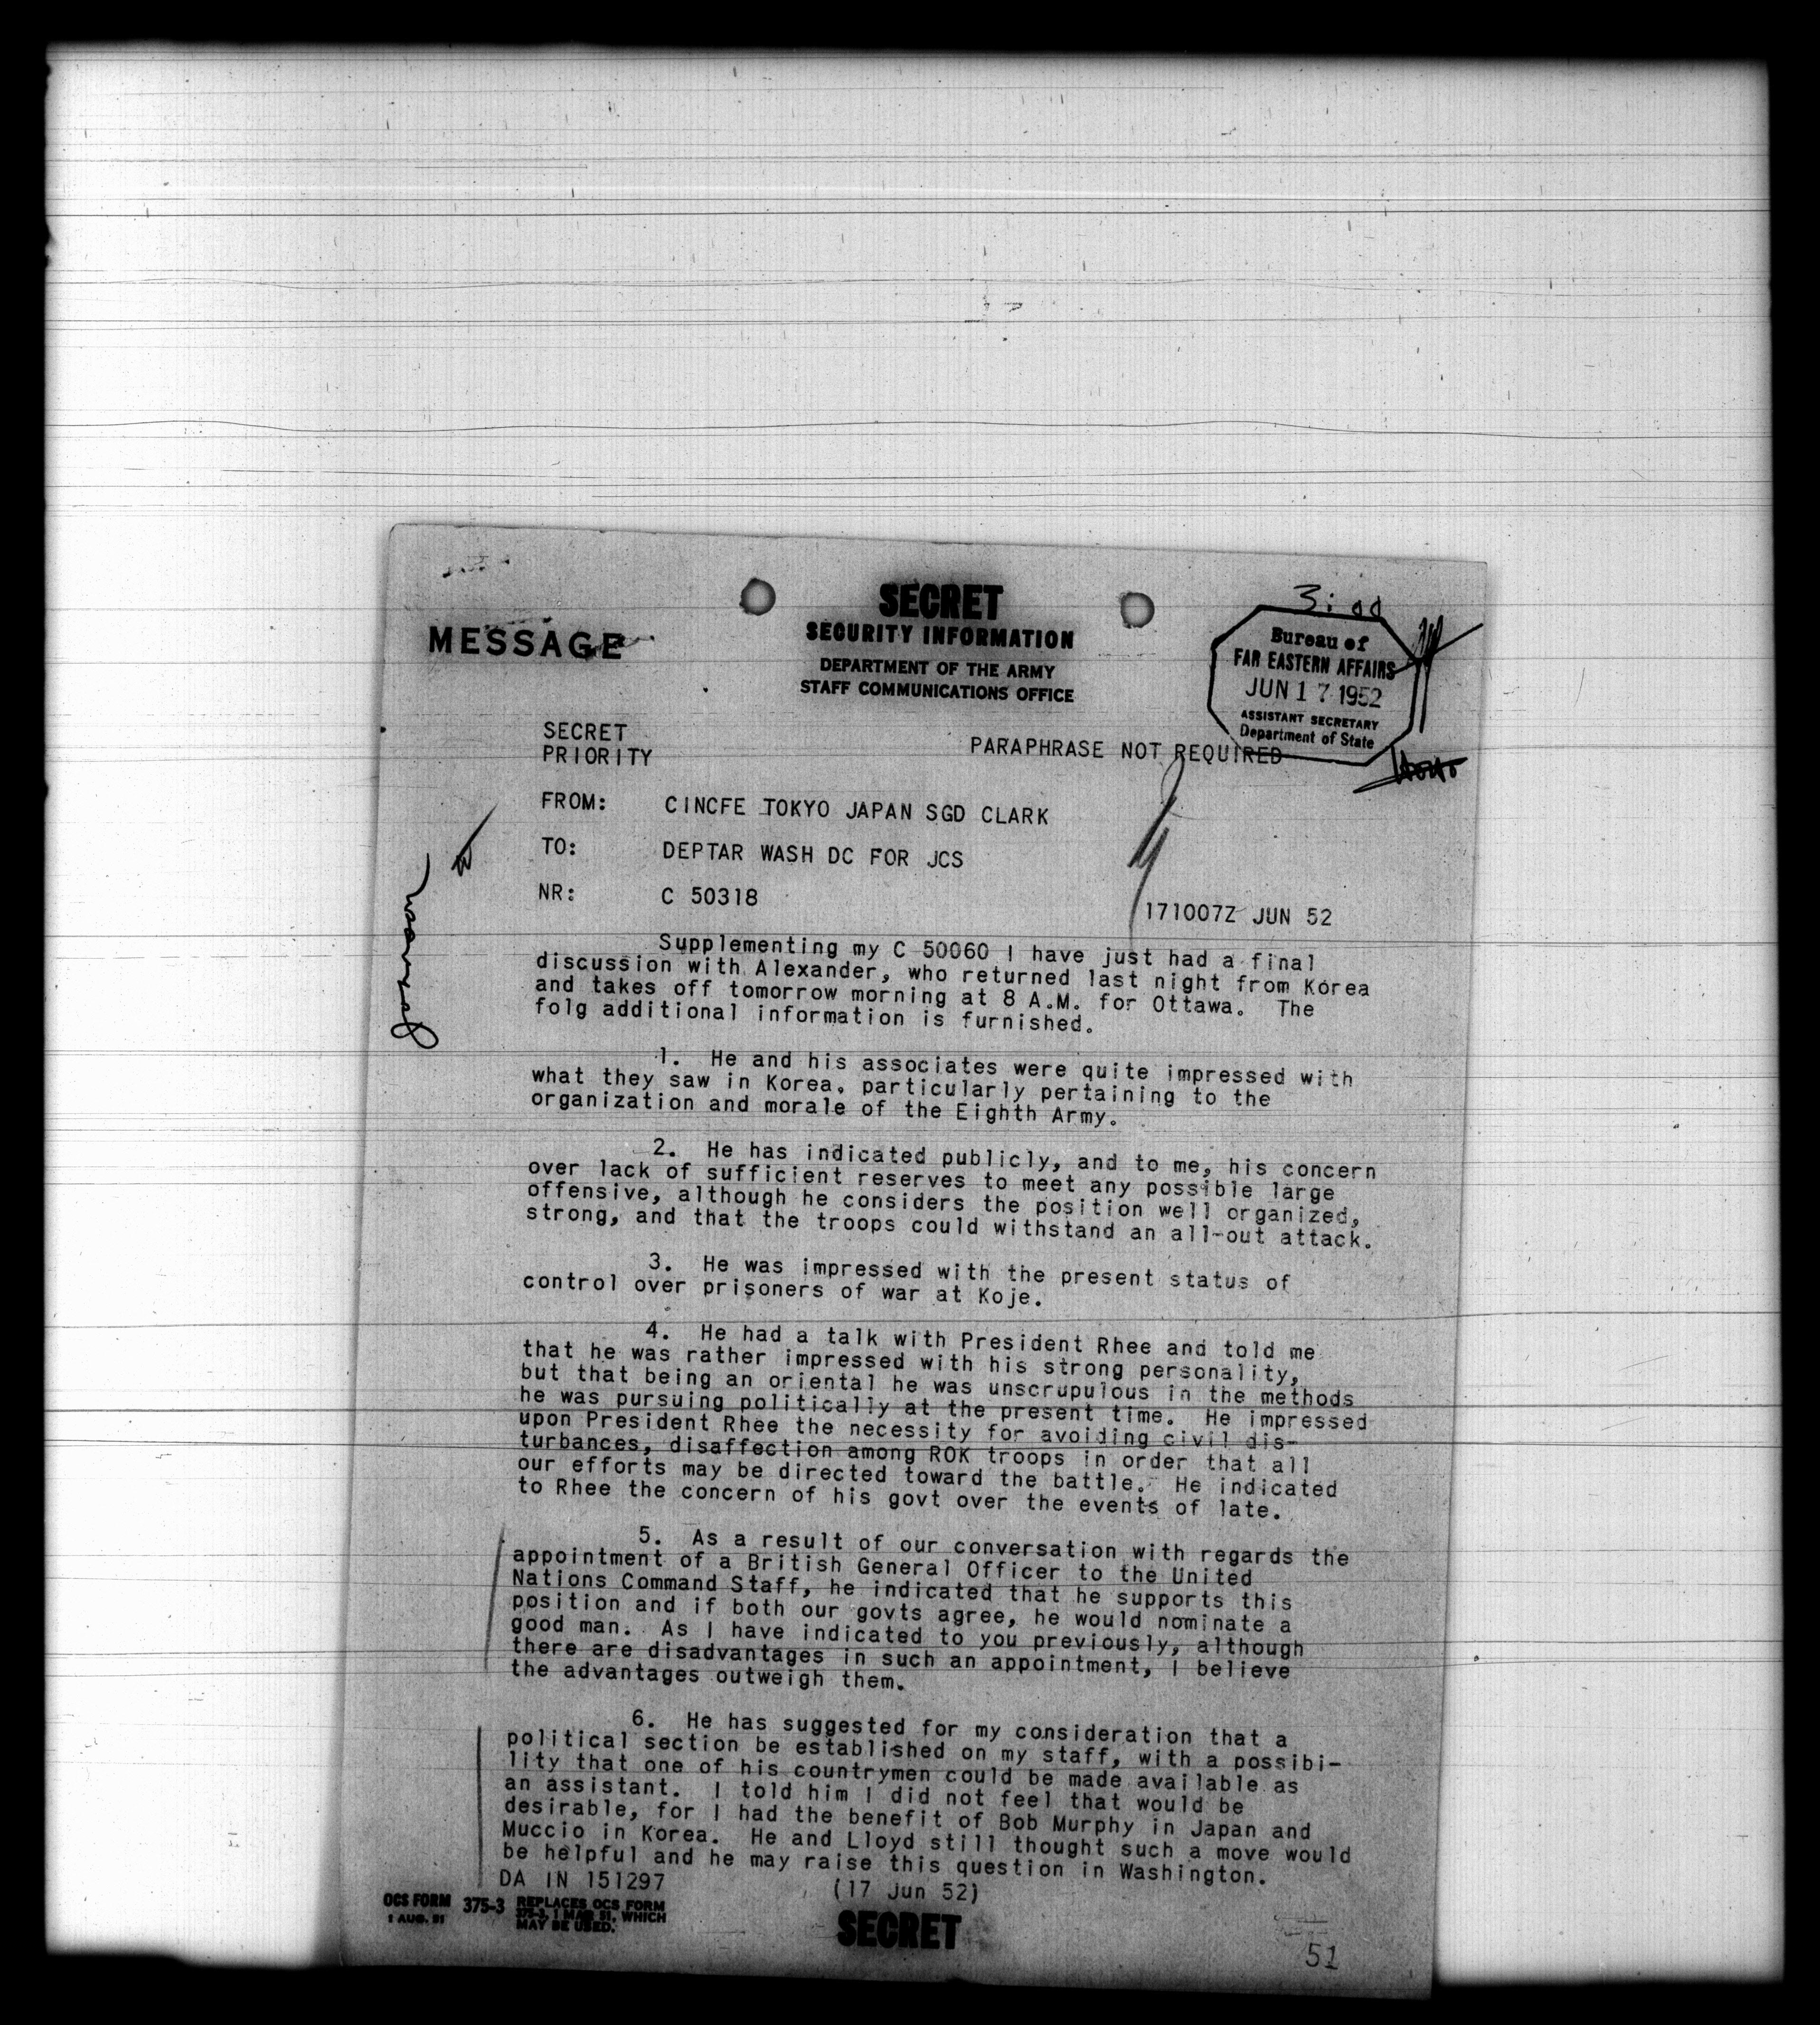 3:00
SECRET
SECURITY INFORMATION
MESSAGE
DEPARTMENT OF THE ARMY
STAFF COMMUNICATIONS OFFICE
Bureau of
FAR EASTERN AFFAIRS
JUN 17 1952
ASSISTANT SECRETARY
Department of State
SECRET
PRIORITY
PARAPHRASE NOT REQUIRED
FROM: CINCFE TOKYO JAPAN SGD CLARK
TO: DEPTAR WASH DC FOR JCS
NR: C 50318
171007Z JUN 52
Supplementing my C 50060 I have just had a final
discussion with Alexander, who returned last night from Korea
and takes off tomorrow morning at 8 A.M. for Ottawa. The
folg additional information is furnished.
1. He and his associates were quite impressed with
what they saw in Korea. particularly pertaining to the
organization and morale of the Eighth Army.
2. He has indicated publicly, and to me, his concern
over lack of sufficient reserves to meet any possible large
offensive, although he considers the position well organized,
strong, and that the troops could withstand an all-out attack.
3. He was impressed with the present status of
control over prisoners of war at Koje.
4. He had a talk with President Rhee and told me
that he was rather impressed with his strong personality,
but that being an oriental he was unscrupulous in the methods
he was pursuing politically at the present time. He impressed
upon President Rhee the necessity for avoiding civil dis-
turbances, disaffection among ROK troops in order that all
our efforts may be directed toward the battle. He indicated
to Rhee the concern of his govt over the events of late.
5. As a result of our conversation with regards the
appointment of a British General Officer to the United
Nations Command Staff, he indicated that he supports this
position and if both our govts agree, he would nominate a
good man. As I have indicated to you previously, although
there are disadvantages in such an appointment, I believe
the advantages outweigh them.
6. He has suggested for my consideration that a
political section be established on my staff, with a possibi-
lity that one of his countrymen could be made available as
an assistant. I told him I did not feel that would be
desirable, for I had the benefit of Bob Murphy in Japan and
Muccio in Korea. He and Lloyd still thought such a move would
be helpful and he may raise this question in Washington.
DA IN 151297
(17 Jun 52)
OCS FORM 375-3 REPLACES OCS FORM
1 AUG. 51 375-3, 1 MAR 51, WHICH
MAY BE USED.
SECRET
51